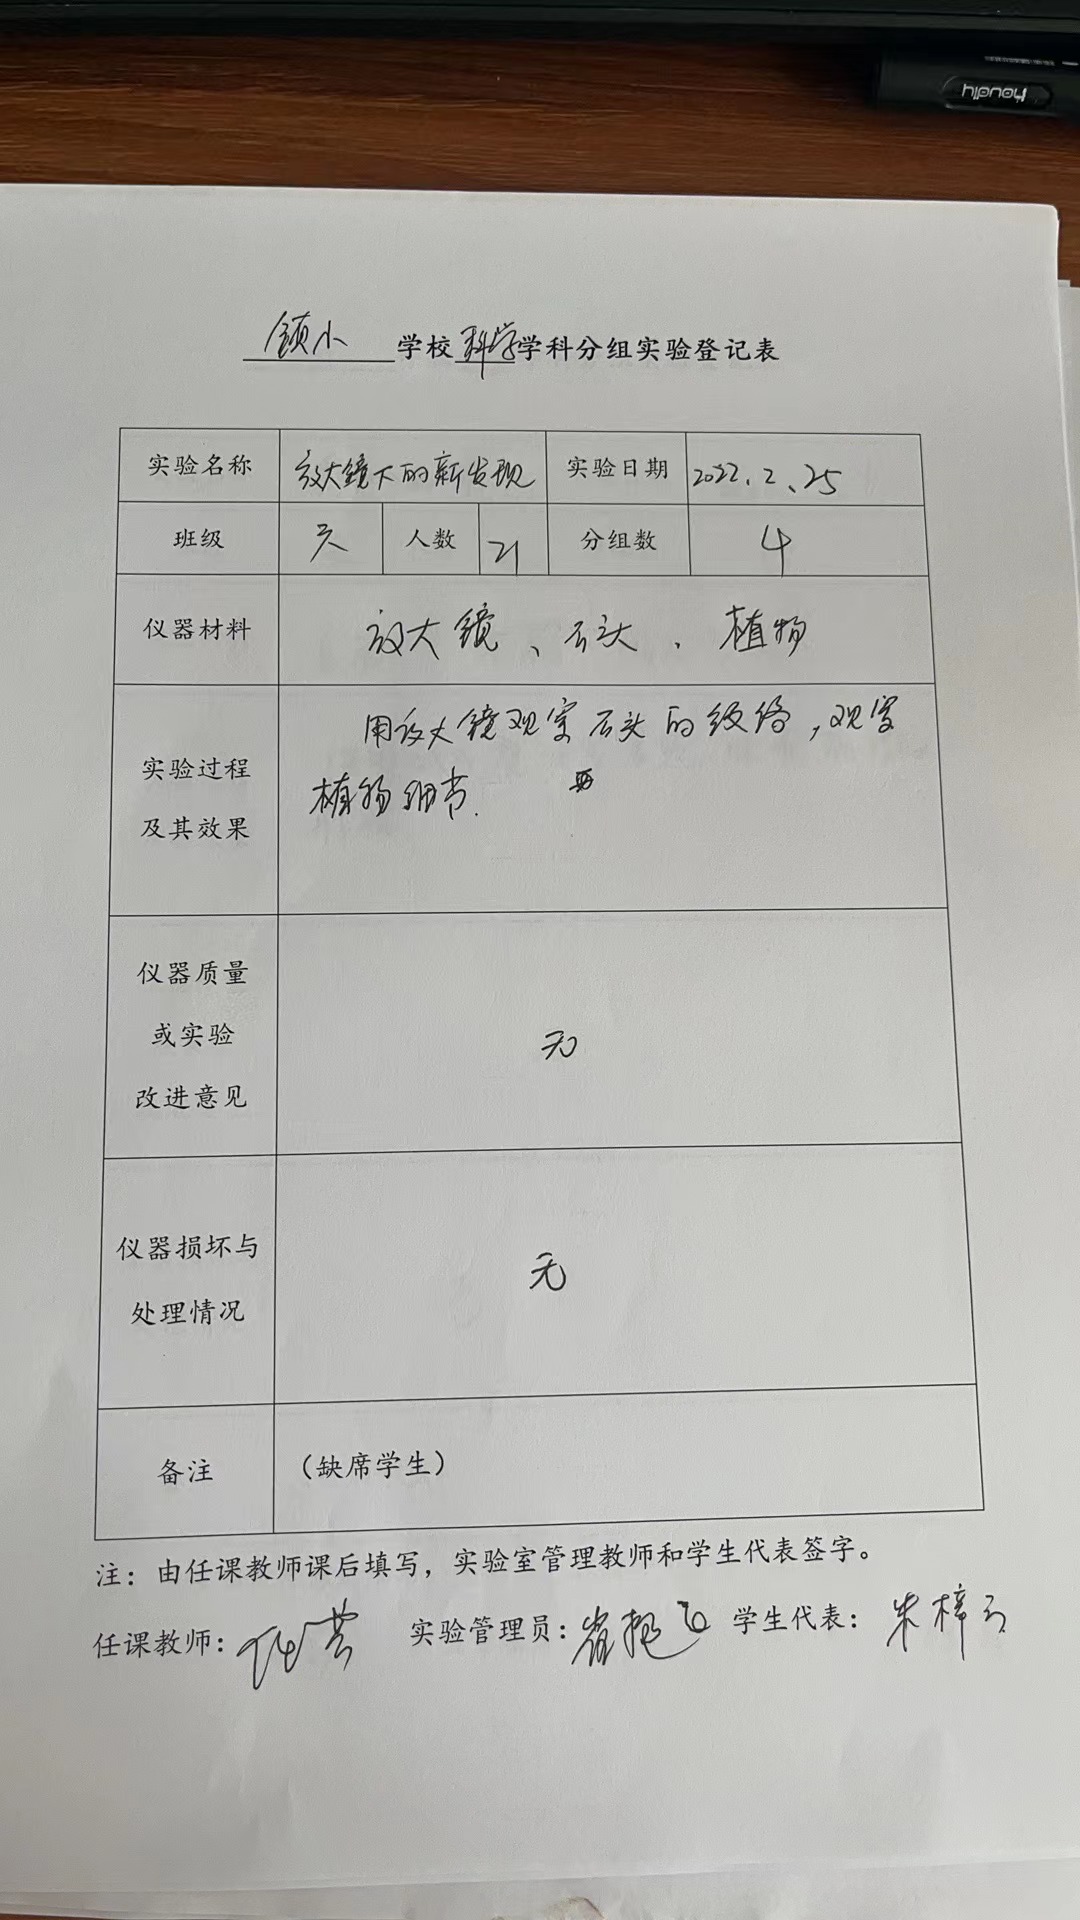 houdly
镇小 学校 科学 学科分组实验登记表
实验名称 放大镜下的新发现 实验日期 2022.2.25
班级 人数 21 分组数 4
仪器材料 放大镜、石头、植物
实验过程
及其效果
用放大镜观察石头的纹络,观察
植物细节.
仪器质量
或实验
改进意见
无
仪器损坏与
处理情况
无
备注 (缺席学生)
注:由任课教师课后填写,实验室管理教师和学生代表签字。
任课教师: 实验管理员: 学生代表:朱梓